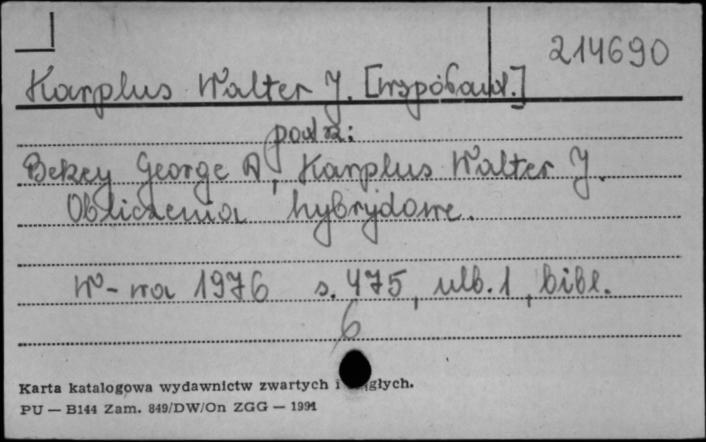 214690
Karplus Walter J. [współaut.]
pod a:
Bekey George A, Karplus Walter J.
Obliczenia hybrydowe.
W-wa 1976 s. 475, ulb. 1, bibl.
6
Karta katalogowa wydawnictw zwartych i głych.
PU — B144 Zam. 849/DW/On ZGG — 1991